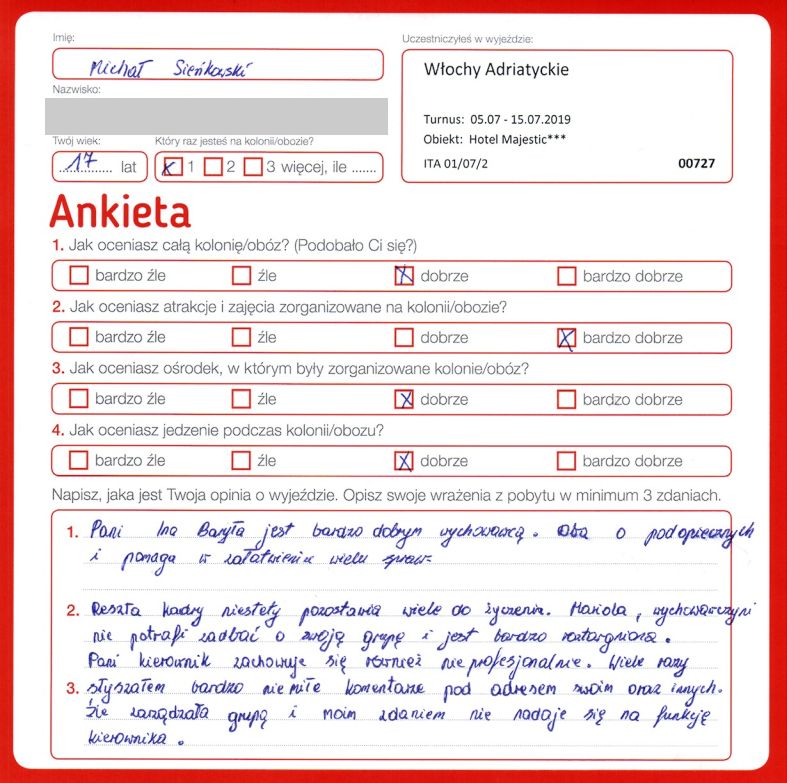 Imię:
Uczestniczyłeś w wyjeździe:
Michał Sieńkowski
Włochy Adriatyckie
Nazwisko:
Turnus: 05.07 - 15.07.2019
Obiekt: Hotel Majestic***
Twój wiek:
Który raz jesteś na kolonii/obozie?
17 lat
1 2 3 więcej, ile .......
ITA 01/07/2 00727
Ankieta
1. Jak oceniasz całą kolonię/obóz? (Podobało Ci się?)
bardzo źle źle dobrze bardzo dobrze
2. Jak oceniasz atrakcje i zajęcia zorganizowane na kolonii/obozie?
bardzo źle źle dobrze bardzo dobrze
3. Jak oceniasz ośrodek, w którym były zorganizowane kolonie/obóz?
bardzo źle źle dobrze bardzo dobrze
4. Jak oceniasz jedzenie podczas kolonii/obozu?
bardzo źle źle dobrze bardzo dobrze
Napisz, jaka jest Twoja opinia o wyjeździe. Opisz swoje wrażenia z pobytu w minimum 3 zdaniach.
1. Pani Ina Baryła jest bardzo dobrym wychowawcą. Dba o podopiecznych
i pomaga w załatwieniu wielu spraw.
2. Reszta kadry niestety pozostawia wiele do życzenia. Mariola, wychowawczyni
nie potrafi zadbać o swoją grupę i jest bardzo roztargniona.
Pani kierownik zachowuje się również nieprofesjonalnie. Wiele razy
3. słyszałem bardzo niemiłe komentarze pod adresem swoim oraz innych.
Źle zarządzała grupą i moim zdaniem nie nadaje się na funkcję
kierownika.